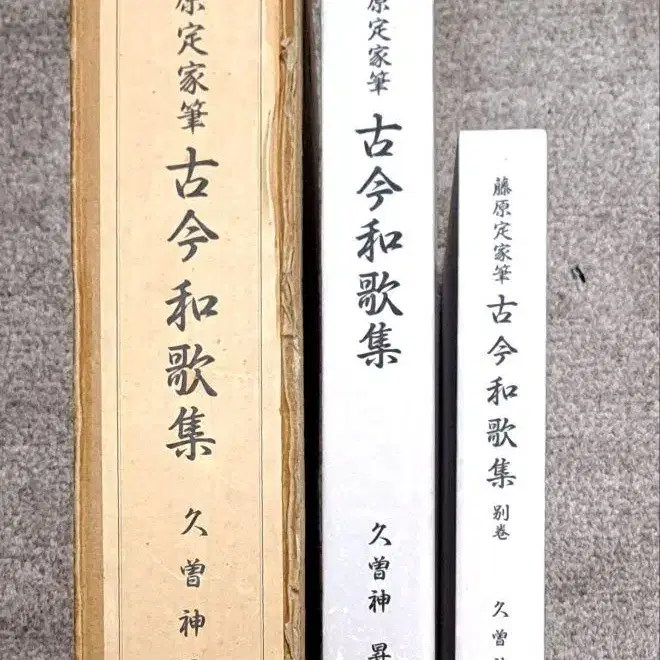 原定家筆 古今和歌集 久曽神
原定家筆 古今和歌集 久曽神 昇
藤原定家筆 古今和歌集 別巻 久曽神